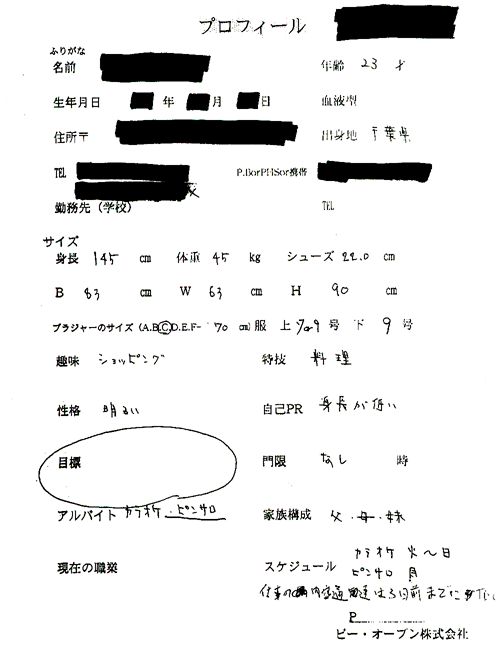 プロフィール
ふりがな
名前 年齢 23 才
生年月日 年 月 日 血液型
住所〒 出身地 千葉県
TEL P.BorPHSor携帯
勤務先（学校） TEL
サイズ
身長 145 cm 体重 45 kg シューズ 22.0 cm
B 83 cm W 63 cm H 90 cm
ブラジャーのサイズ (A.B.C.D.E.F- 70 cm) 服 上 7or9 号 下 9 号
趣味 ショッピング 特技 料理
性格 明るい 自己PR 身長が低い
目標 門限 なし 時
アルバイト カラオケ・ピンサロ 家族構成 父・母・妹
現在の職業 スケジュール カラオケ 火〜日
ピンサロ 月
仕事の 内容 は3日前までに
P
ビー・オープン株式会社